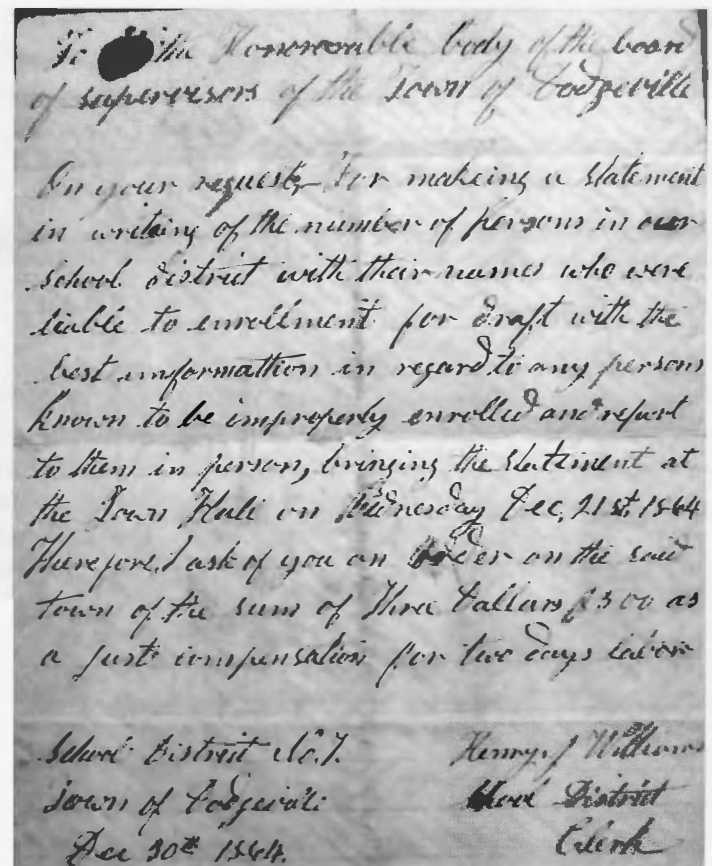 To the Honororable body of the board
of supervisors of the Town of Dodgeville
On your request, For makeing a statement
in writeing of the number of persons in our
school district with their names who were
liable to enrollment for draft with the
best imformathion in regard to any persons
known to be improperly enrolled and report
to them in person, bringing the statiment at
the Town Hall on Wednesday Dec, 21st, 1864
Therefore, I ask of you an Order on the said
town of the sum of Three Dallars $3 00 as
a just compensation for two days labor
School District No. 7.
Town of Dodgeville
Dec 30th 1864.
Henry. J Williams
School District
Clerk